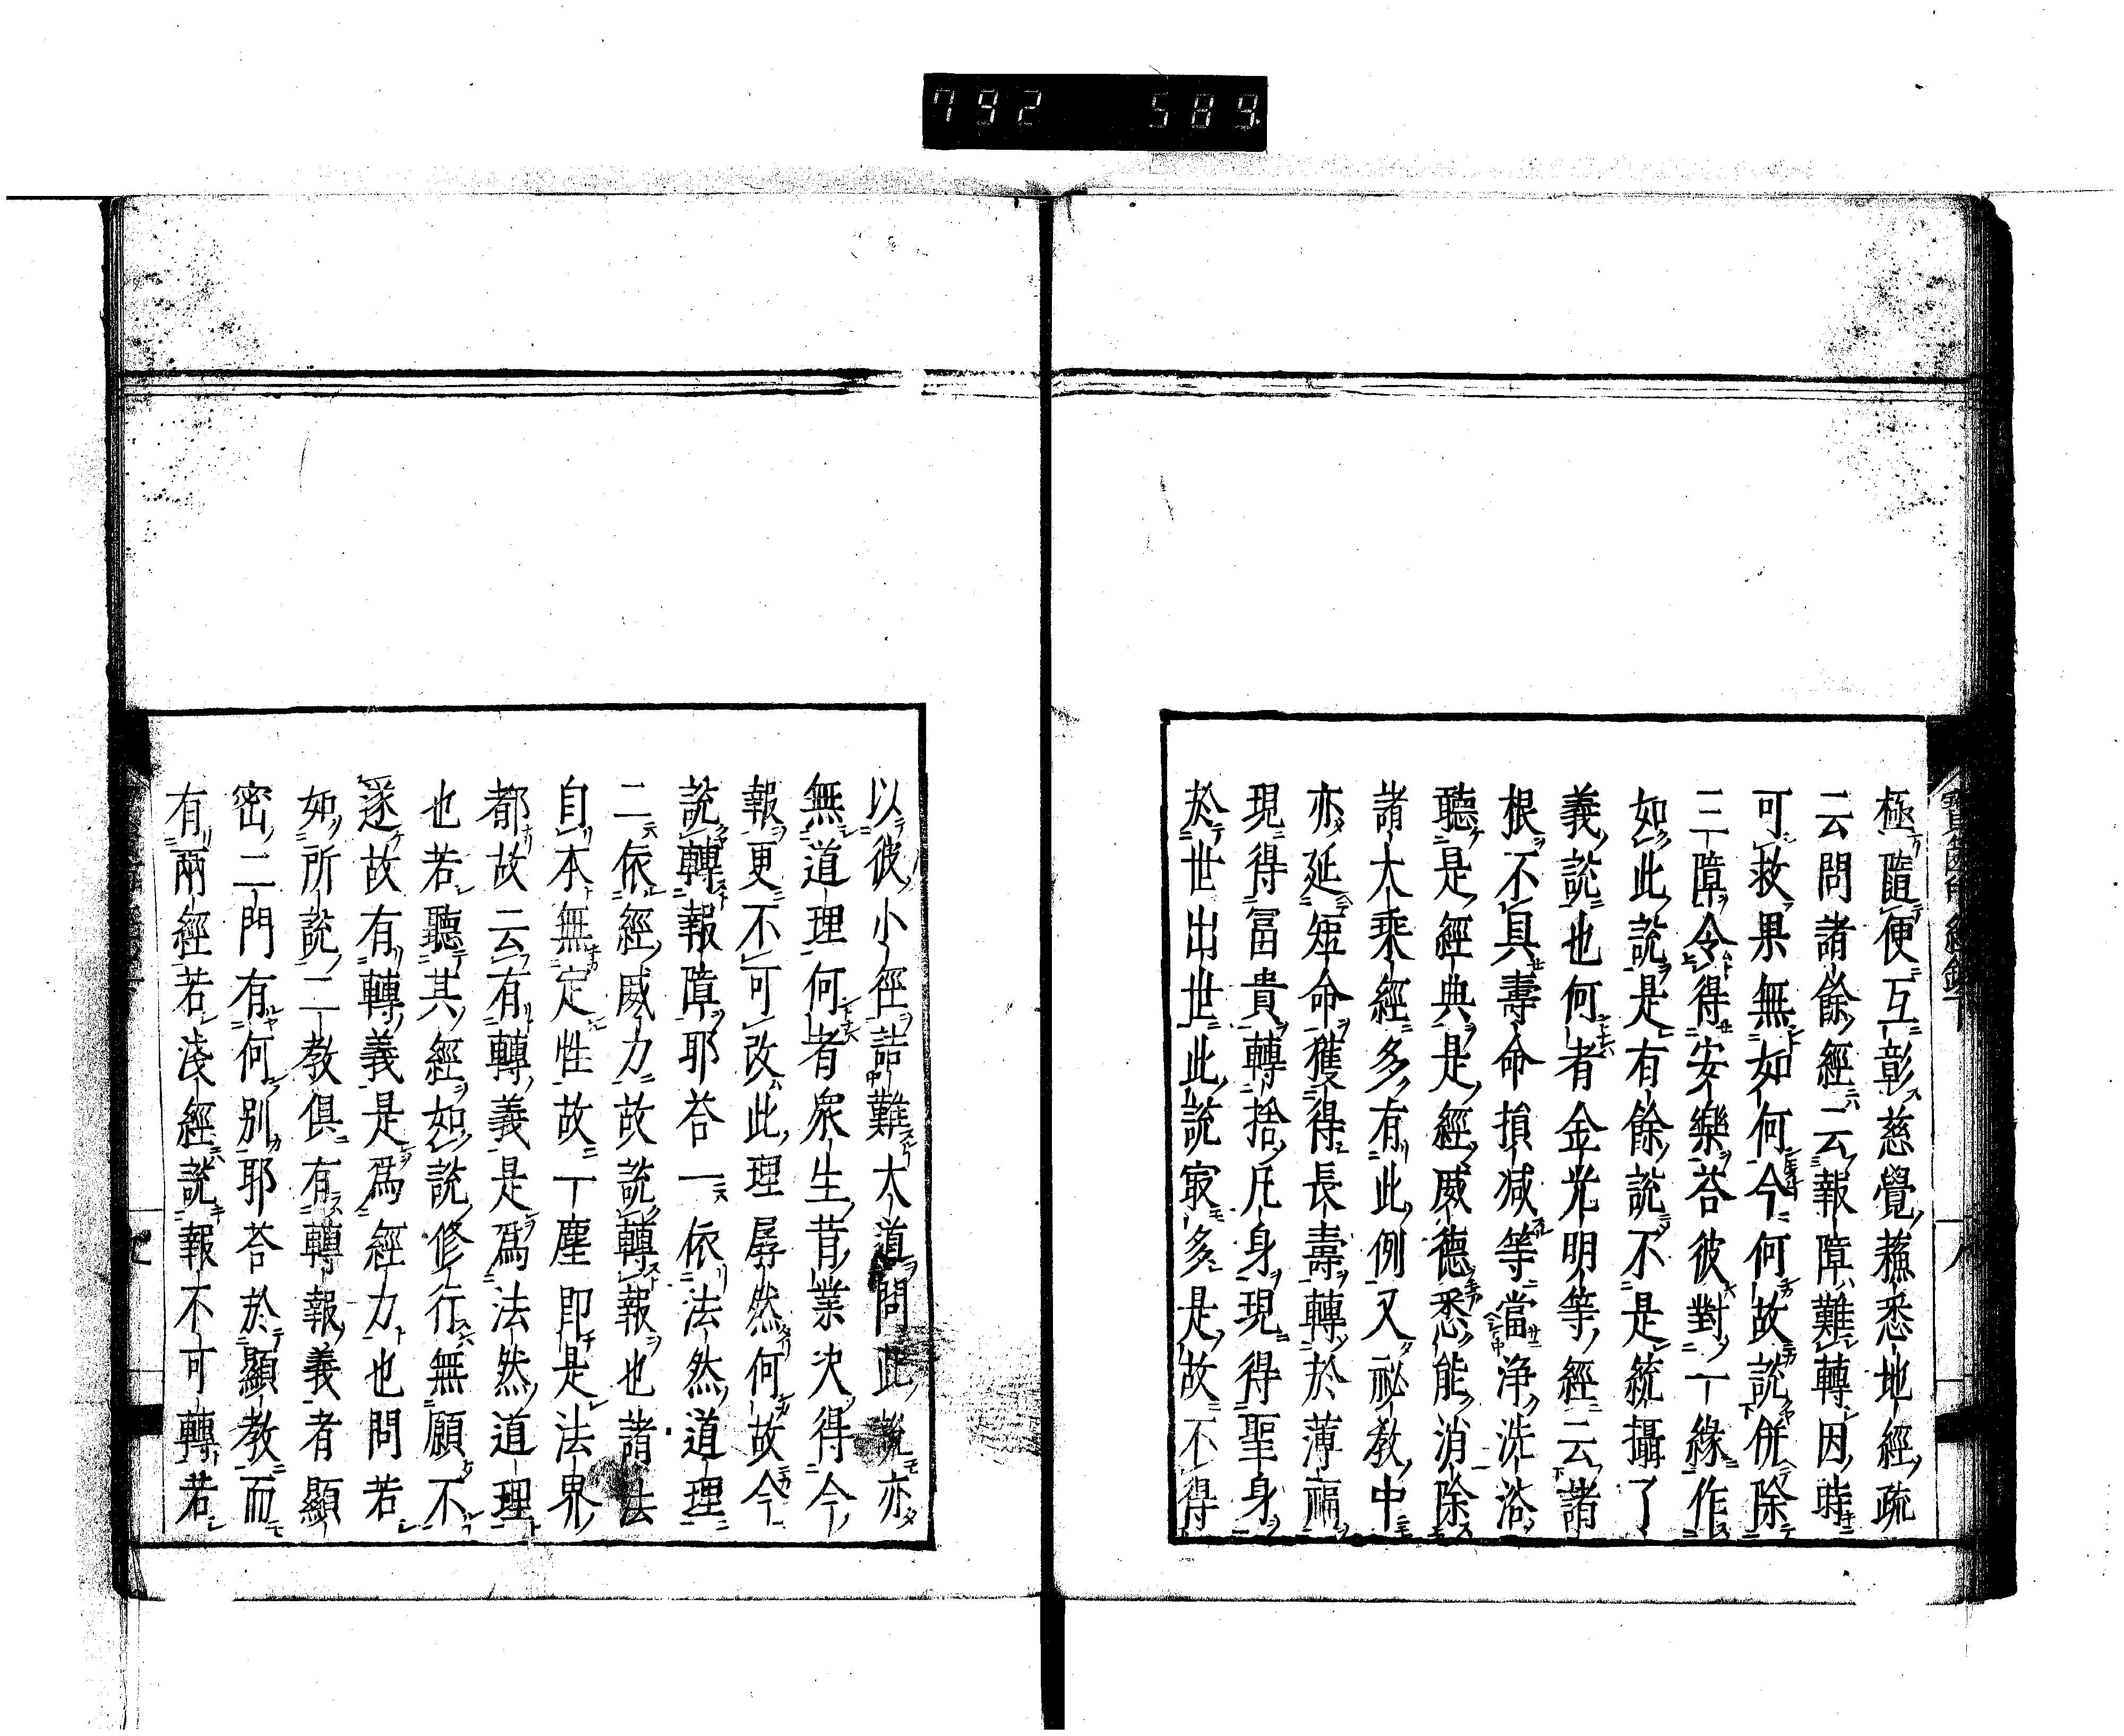 792 589
極隨便互彰慈覺蘓悉地經疏
云問諸餘經云報障難轉因時
可救果無如何今何故說併除
三障令得安樂荅彼對一緣作
如此說是有餘說不是統攝了
義說也何者金光明等經云諸
根不具壽命損減等當淨洗浴
聽是經典是經威德悉能消除
諸大乘經多有此例又祕教中
亦延短命獲得長壽轉於薄福
現得冨貴轉捨凡身現得聖身
於世出世此說㝡多是故不得
以彼小徑詰難大道問此說亦
無道理何者衆生昔業決得今
報更不可改此理孱然何故今
說轉報障耶荅一依法然道理
二依經威力故說轉報也諸法
自本無定性故一塵即是法界
都故云有轉義是爲法然道理
也若聽其經如說修行無願不
遂故有轉義是爲經力也問若
如所說二教俱有轉報義者顯
密二門有何別耶荅於顯教而
有兩經若淺經說報不可轉若